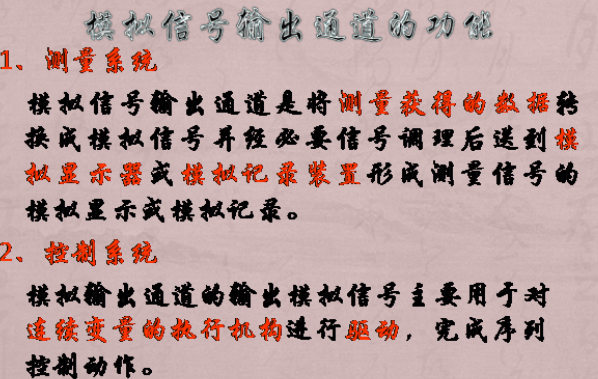 模拟信号输出通道的功能
1、测量系统
模拟信号输出通道是将测量获得的数据转
换成模拟信号并经必要信号调理后送到模
拟显示器或模拟记录装置形成测量信号的
模拟显示或模拟记录。
2、控制系统
模拟输出通道的输出模拟信号主要用于对
连续变量的执行机构进行驱动，完成序列
控制动作。